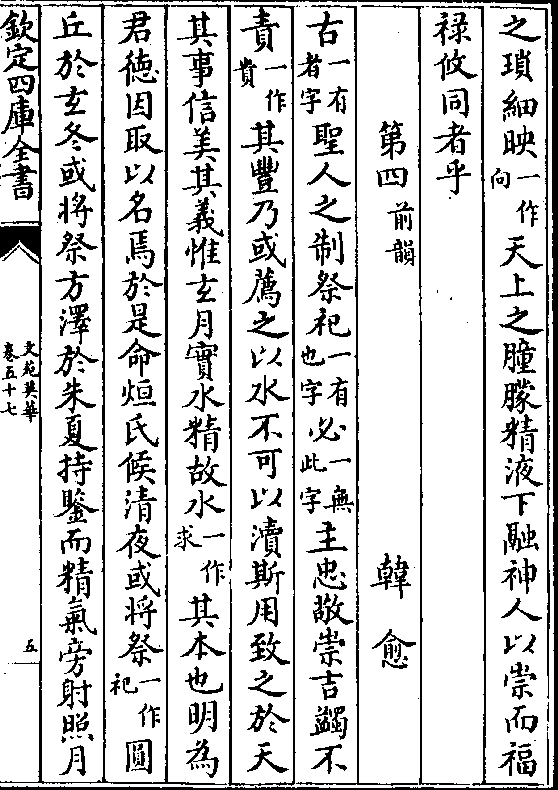 之瑣細映一作向天上之朣朦精液下融神人以崇而福
祿攸同者乎
第四前韻 韓愈
古一有者字聖人之制祭祀一有也字必一無此字主忠敬崇吉蠲不
責一作貴其豐乃或薦之以水不可以瀆斯用致之於天
其事信美其義惟玄月實水精故水一作求其本也明為
君德因取以名焉於是命烜氏候清夜或將祭一作祀圓
丘於玄冬或將祭方澤於朱夏持鑒而精氣旁射照月
欽定四庫全書
文苑英華
卷五十七
五